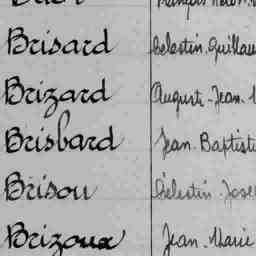 Brisard Célestin Guillau
Brizard Auguste-Jean-
Brisbard Jean Baptist
Brisou Célestin Jose
Brizoux Jean Marie